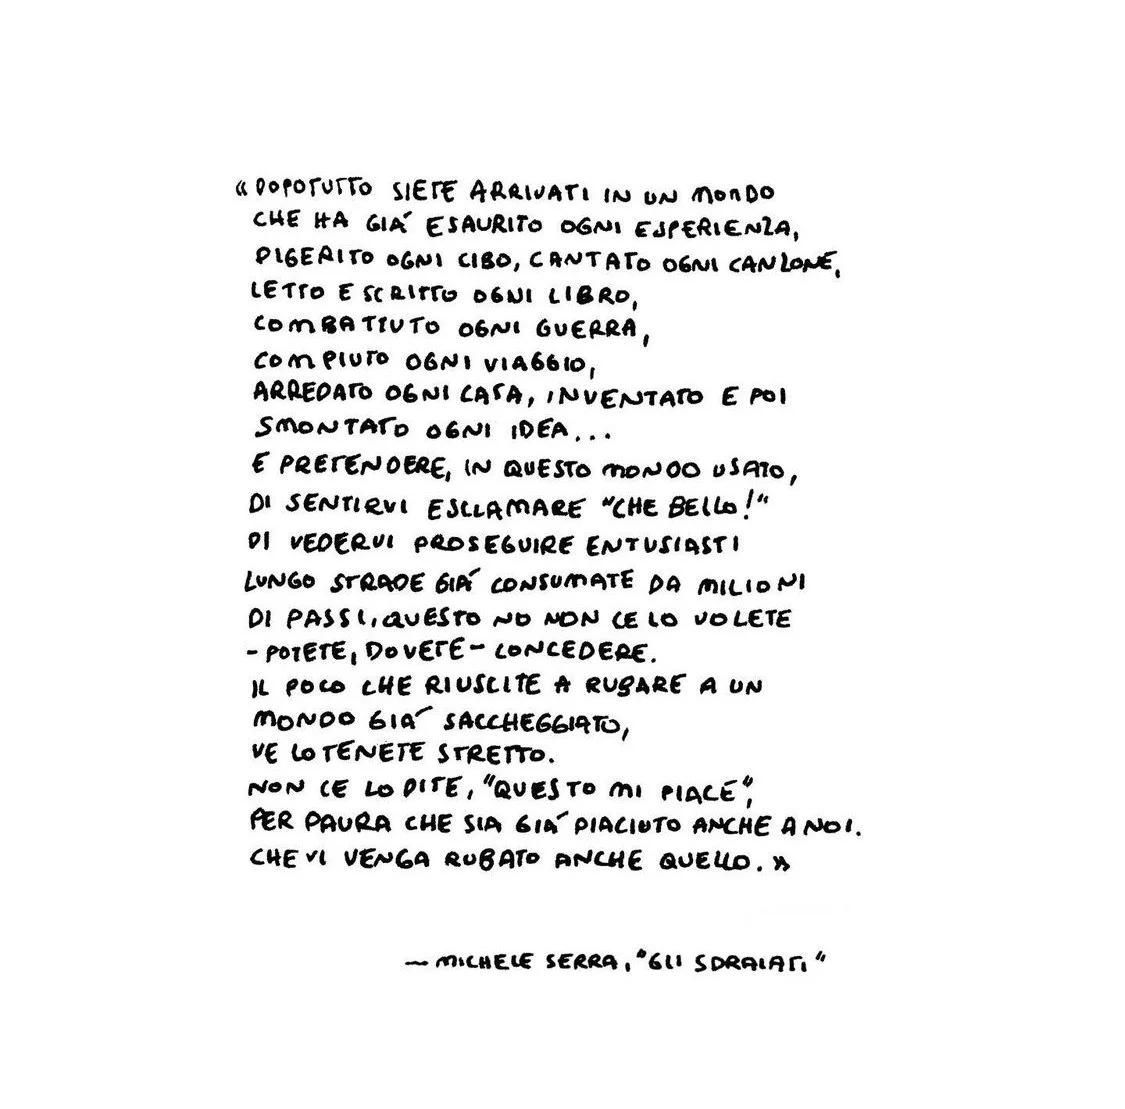 « DOPOTUTTO SIETE ARRIVATI IN UN MONDO
CHE HA GIÁ ESAURITO OGNI ESPERIENZA,
DIGERITO OGNI CIBO, CANTATO OGNI CANZONE,
LETTO E SCRITTO OGNI LIBRO,
COMBATTUTO OGNI GUERRA,
COMPIUTO OGNI VIAGGIO,
ARREDATO OGNI CASA, INVENTATO E POI
SMONTATO OGNI IDEA...
E PRETENDERE, IN QUESTO MONDO USATO,
DI SENTIRVI ESCLAMARE "CHE BELLO!"
DI VEDERVI PROSEGUIRE ENTUSIASTI
LUNGO STRADE GIÁ CONSUMATE DA MILIONI
DI PASSI, QUESTO NO NON CE LO VOLETE
- POTETE, DOVETE - CONCEDERE.
IL POCO CHE RIUSCITE A RUBARE A UN
MONDO GIÁ SACCHEGGIATO,
VE LO TENETE STRETTO.
NON CE LO DITE, "QUESTO MI PIACE",
PER PAURA CHE SIA GIÁ PIACIUTO ANCHE A NOI.
CHE VI VENGA RUBATO ANCHE QUELLO. »
— MICHELE SERRA, "GLI SDRAIATI"